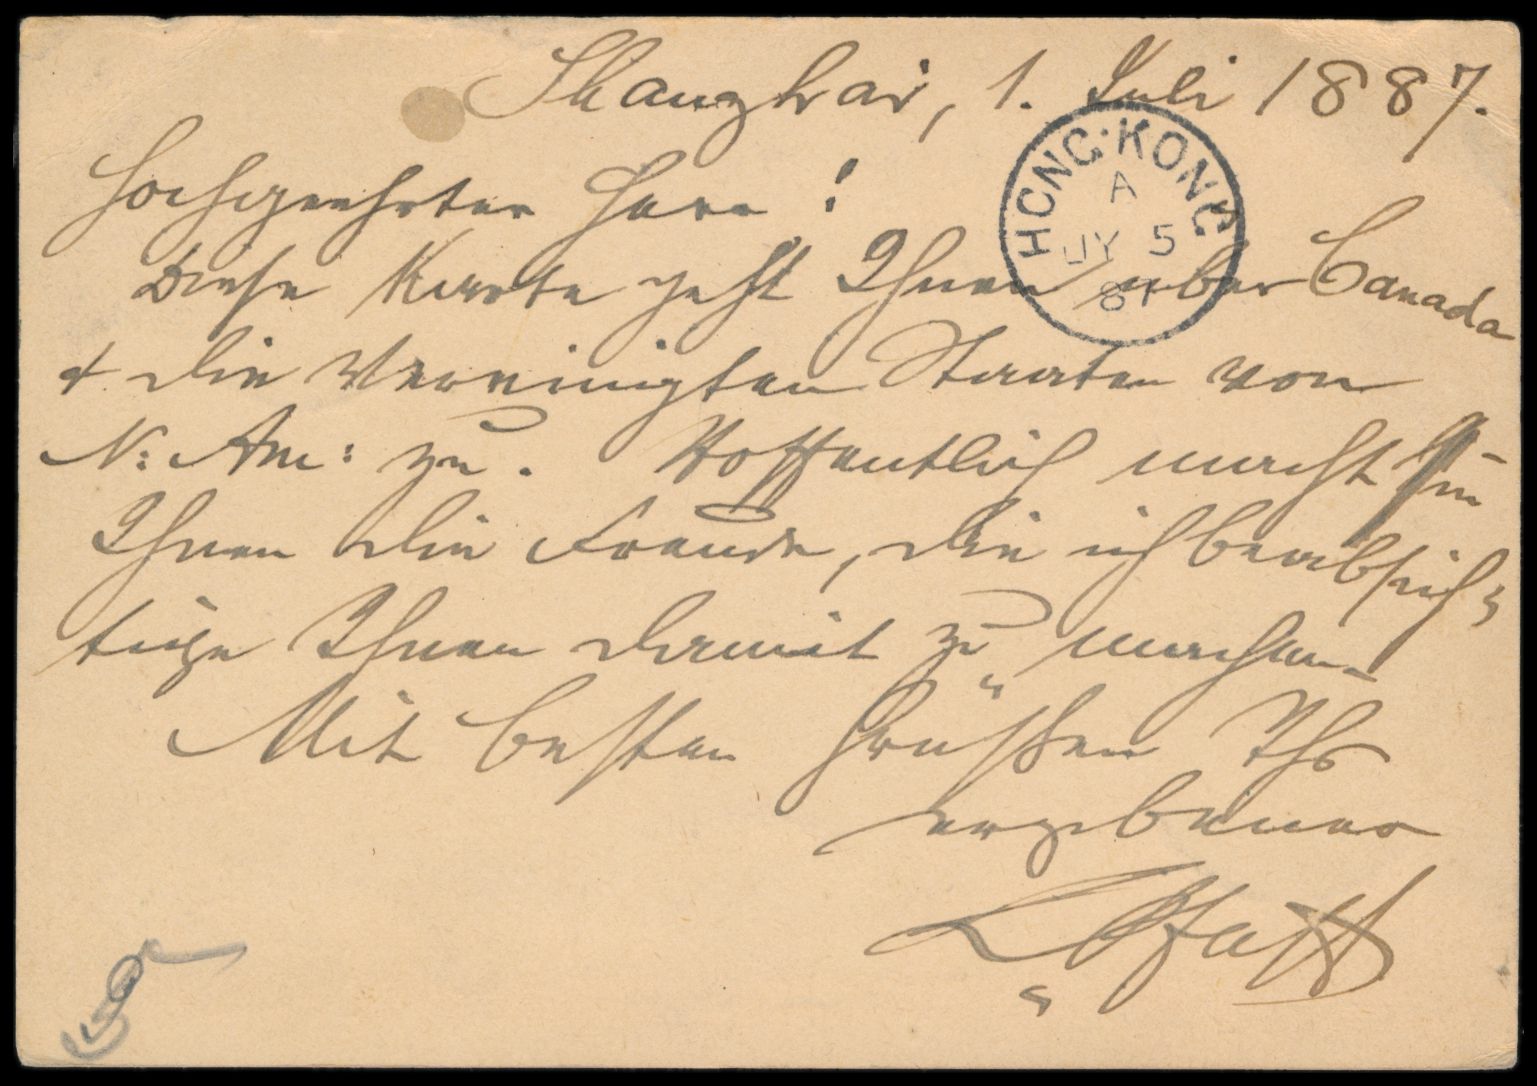 Shanghai, 1. Juli 1887.
Hochgeehrter Herr!
HONG-KONG
A
JY 5
87
Diese Karte geht Ihnen über Canada
+ die Vereinigten Staaten von
N: Am: zu. Hoffentlich macht sie
Ihnen die Freude, die ich beabsich=
tige Ihnen damit zu machen.
Mit besten Grüßen Ihr
ergebener
Pfaff